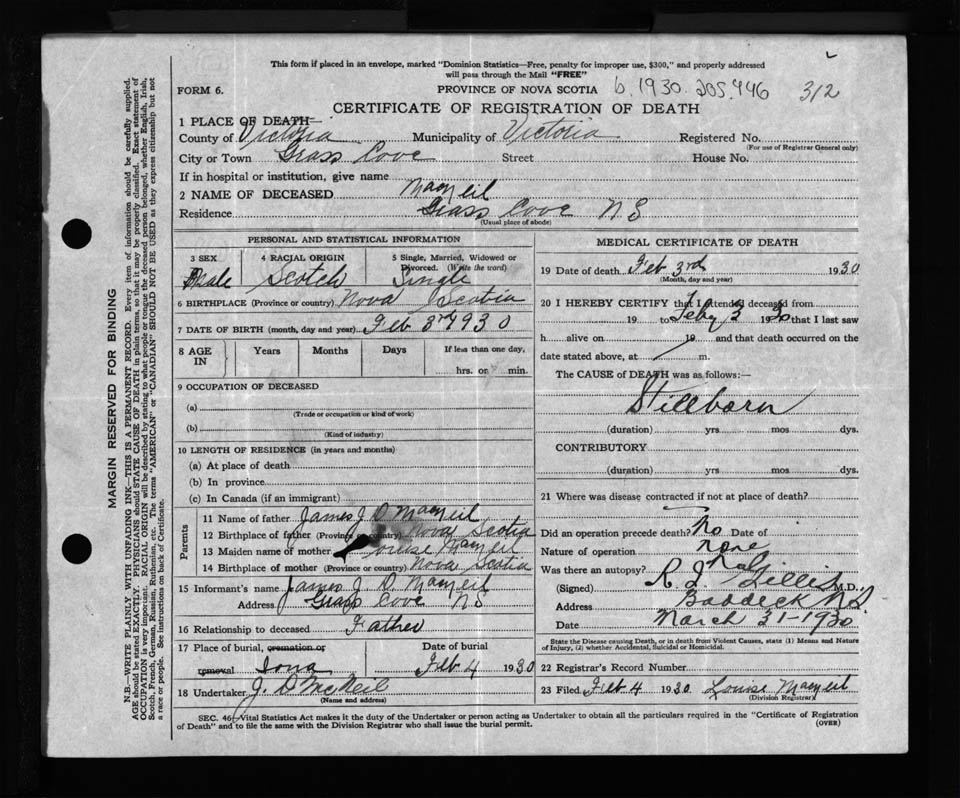 This form if placed in an envelope, marked "Dominion Statistics—Free, penalty for improper use, $300," and properly addressed
will pass through the Mail "FREE"
FORM 6.
PROVINCE OF NOVA SCOTIA
b. 1930. 205.446
312
CERTIFICATE OF REGISTRATION OF DEATH
1 PLACE OF DEATH—
County of Victoria Municipality of Victoria Registered No.
(For use of Registrar General only)
City or Town Grass Cove Street House No.
If in hospital or institution, give name
2 NAME OF DECEASED MacNeil
Residence Grass Cove N S
(Usual place of abode)
PERSONAL AND STATISTICAL INFORMATION
3 SEX 4 RACIAL ORIGIN 5 Single, Married, Widowed or Divorced. (Write the word)
Male Scotch Single
6 BIRTHPLACE (Province or country) Nova Scotia
7 DATE OF BIRTH (month, day and year) Feb 3rd 1930
8 AGE IN Years Months Days If less than one day,
hrs. or min.
9 OCCUPATION OF DECEASED
(a)
(Trade or occupation or kind of work)
(b)
(Kind of industry)
10 LENGTH OF RESIDENCE (in years and months)
(a) At place of death
(b) In province
(c) In Canada (if an immigrant)
Parents
11 Name of father James J D MacNeil
12 Birthplace of father (Province or country) Nova Scotia
13 Maiden name of mother Louise MacNeil
14 Birthplace of mother (Province or country) Nova Scotia
15 Informant's name James J. D. MacNeil
Address Grass Cove NS
16 Relationship to deceased Father
17 Place of burial, cremation or removal Iona
Date of burial Feb 4 1930
18 Undertaker J. D McNeil
(Name and address)
MEDICAL CERTIFICATE OF DEATH
19 Date of death Feb 3rd 1930
(Month, day and year)
20 I HEREBY CERTIFY that I attended deceased from
19 to Feby 3 1930 that I last saw
h alive on 19 and that death occurred on the
date stated above, at m.
The CAUSE of DEATH was as follows:—
Stillborn
(duration) yrs mos dys.
CONTRIBUTORY
(duration) yrs mos dys.
21 Where was disease contracted if not at place of death?
Did an operation precede death? No Date of
Nature of operation none
Was there an autopsy? No
(Signed) R J Gillis M.D.
Address Baddeck N.S.
Date March 31-1930
State the Disease causing Death, or in death from Violent Causes, state (1) Means and Nature
of Injury, (2) whether Accidental, Suicidal or Homicidal.
22 Registrar's Record Number
23 Filed Feb 4 1930 Louise MacNeil
(Division Registrar)
SEC. 46—Vital Statistics Act makes it the duty of the Undertaker or person acting as Undertaker to obtain all the particulars required in the "Certificate of Registration
of Death" and to file the same with the Division Registrar who shall issue the burial permit.
(OVER)
MARGIN RESERVED FOR BINDING
N.B.—WRITE PLAINLY WITH UNFADING INK—THIS IS A PERMANENT RECORD. Every item of information should be carefully supplied.
AGE should be stated EXACTLY. PHYSICIANS should STATE CAUSE OF DEATH in plain terms, so that it may be properly classified. Exact statement of
OCCUPATION is very important. RACIAL ORIGIN will be described by stating to what people or tongue the deceased person belonged, whether English, Irish,
Scotch, French, German, Russian, Ruthenian, etc. The terms "AMERICAN" or "CANADIAN" SHOULD NOT BE USED as they express citizenship but not
a race or people. See instructions on back of Certificate.